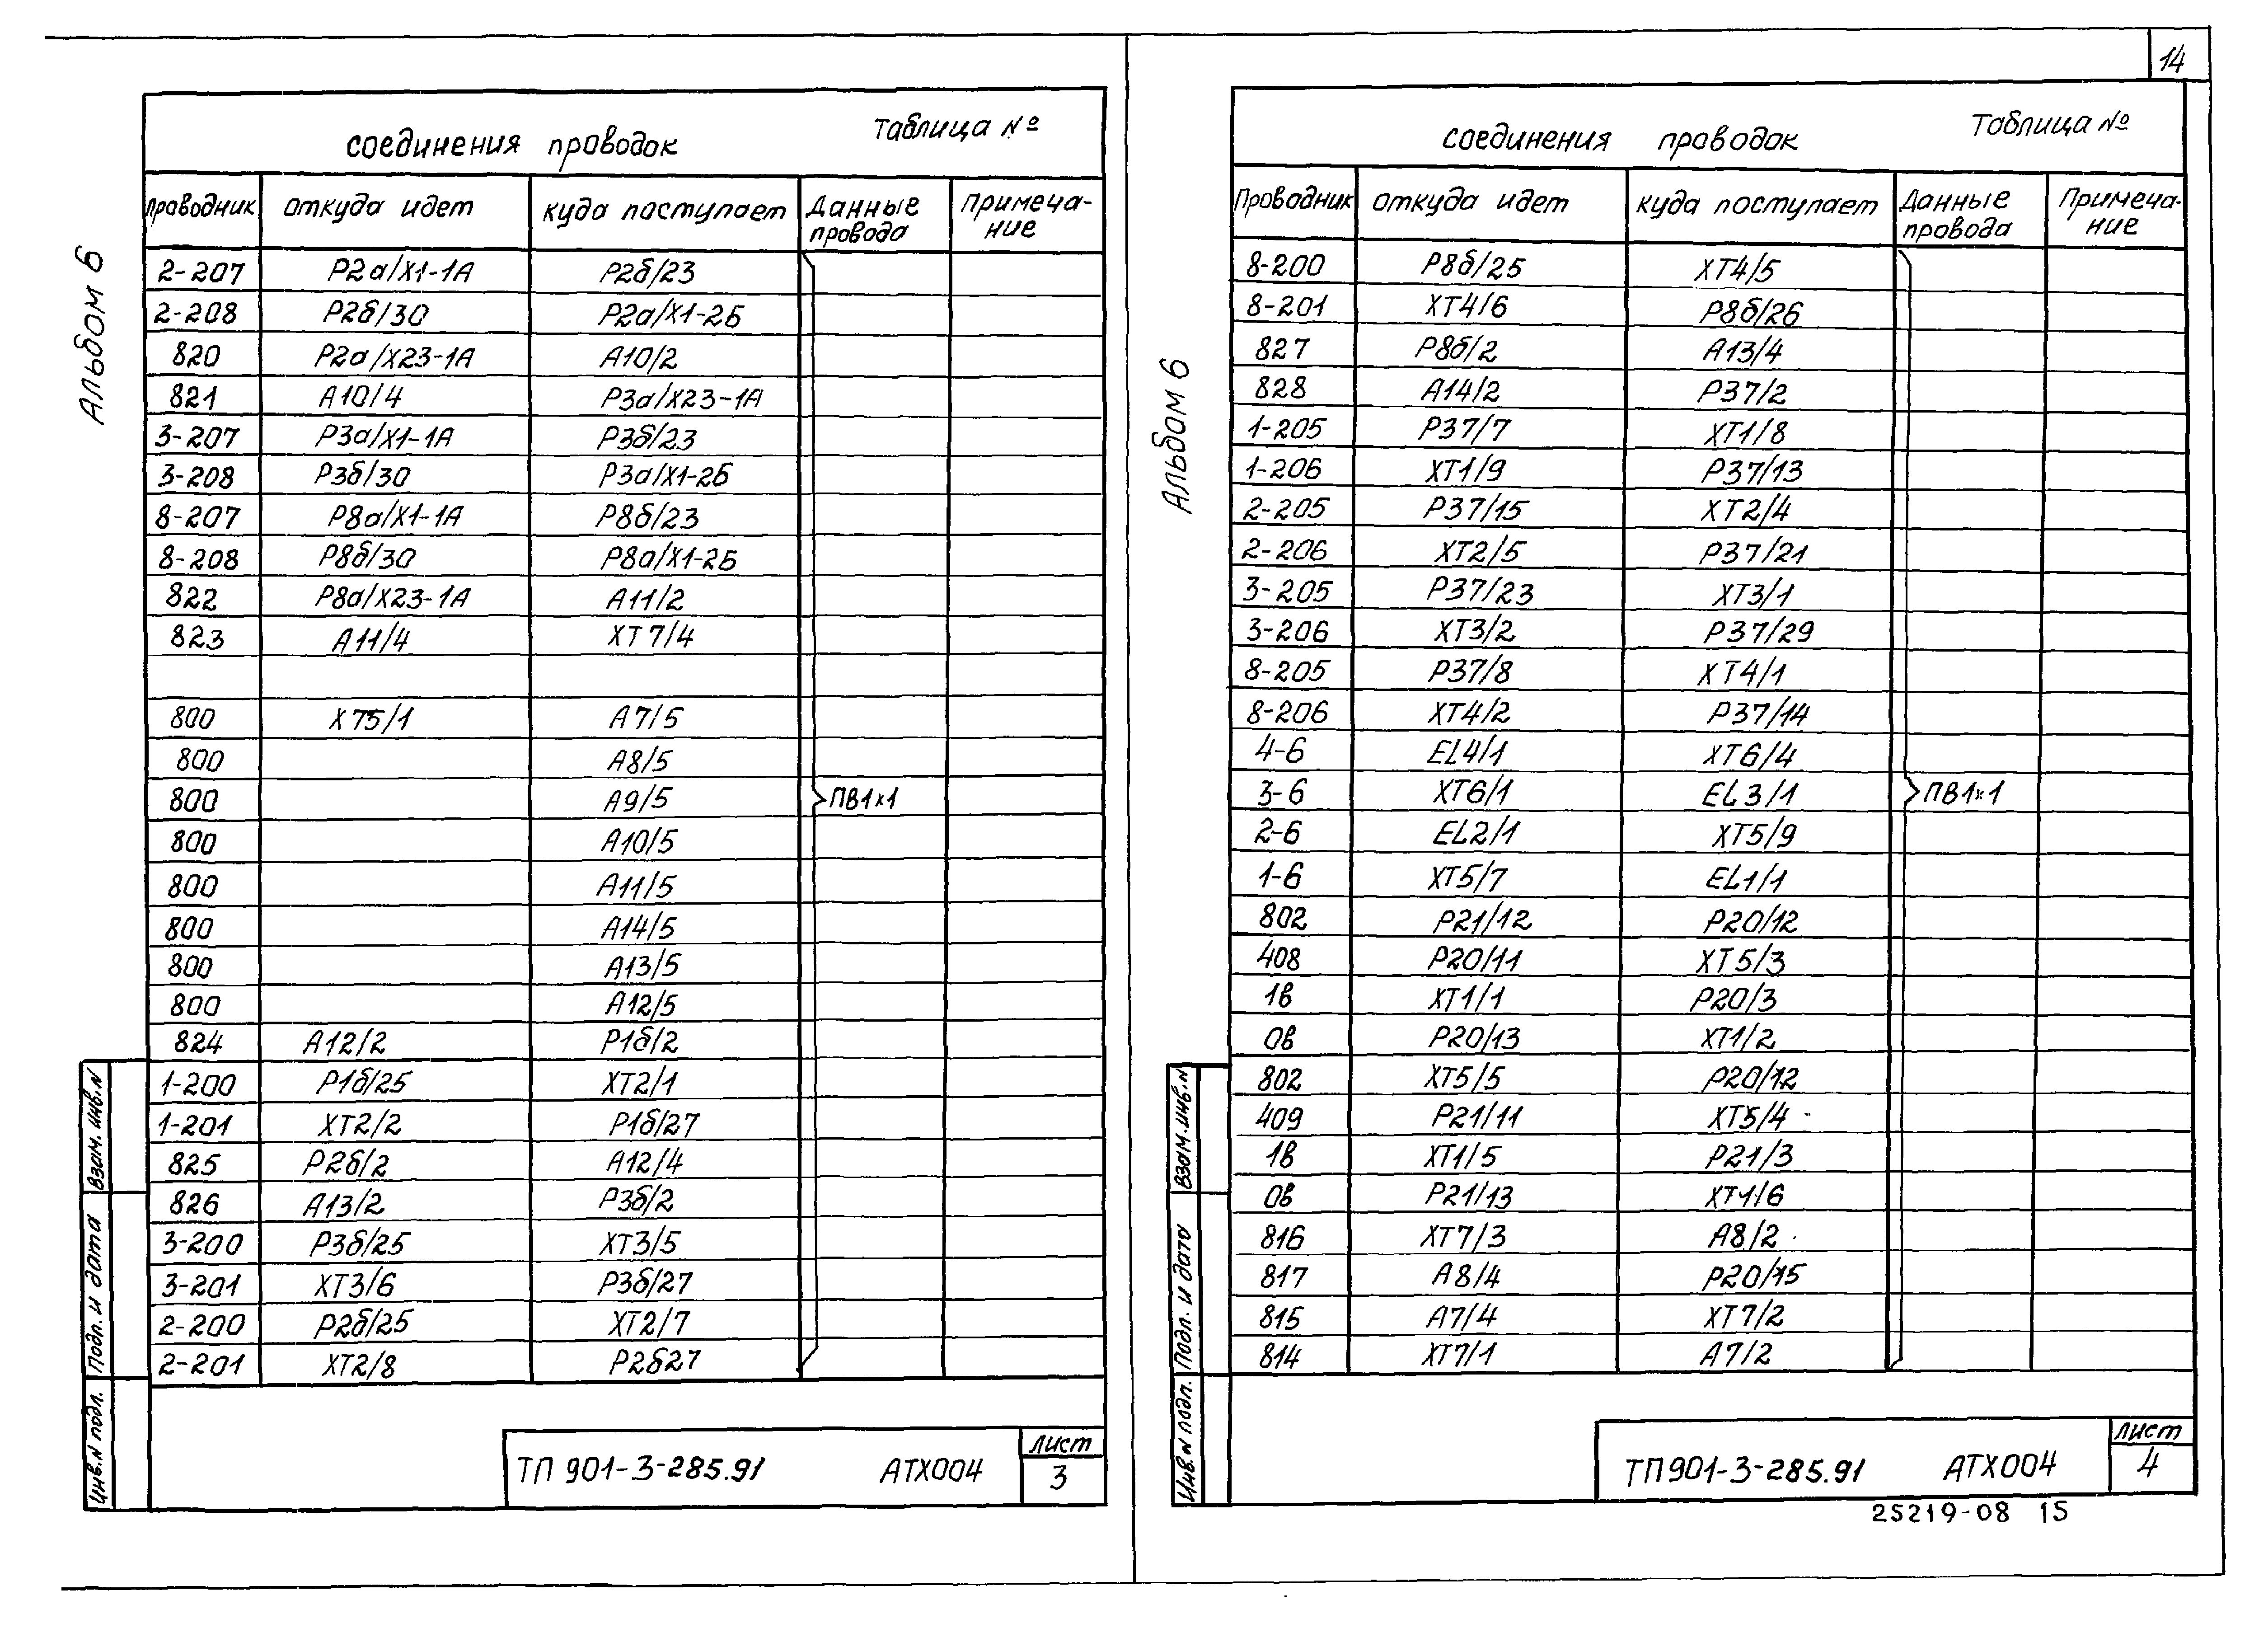 14
Альбом 6
соединения проводок Таблица №
Проводник откуда идет куда поступает Данные провода Примечание
2-207 Р2а/Х1-1А Р2б/23
2-208 Р2б/30 Р2а/Х1-2Б
820 Р2а/Х23-1А А10/2
821 А10/4 Р3а/Х23-1А
3-207 Р3а/Х1-1А Р3б/23
3-208 Р3б/30 Р3а/Х1-2Б
8-207 Р8а/Х1-1А Р8б/23
8-208 Р8б/30 Р8а/Х1-2Б
822 Р8а/Х23-1А А11/2
823 А11/4 ХТ7/4
800 ХТ5/1 А7/5
800 А8/5
800 А9/5 ПВ1х1
800 А10/5
800 А11/5
800 А14/5
800 А13/5
800 А12/5
824 А12/2 Р1б/2
1-200 Р1б/25 ХТ2/1
1-201 ХТ2/2 Р1б/27
825 Р2б/2 А12/4
826 А13/2 Р3б/2
3-200 Р3б/25 ХТ3/5
3-201 ХТ3/6 Р3б/27
2-200 Р2б/25 ХТ2/7
2-201 ХТ2/8 Р2б27
Взам. инв.N
Подп. и дата
Инв.N подл.
ТП 901-3-285.91 АТХ004 Лист 3
Альбом 6
соединения проводок Таблица №
Проводник откуда идет куда поступает Данные провода Примечание
8-200 Р8б/25 ХТ4/5
8-201 ХТ4/6 Р8б/26
827 Р8б/2 А13/4
828 А14/2 Р37/2
1-205 Р37/7 ХТ1/8
1-206 ХТ1/9 Р37/13
2-205 Р37/15 ХТ2/4
2-206 ХТ2/5 Р37/21
3-205 Р37/23 ХТ3/1
3-206 ХТ3/2 Р37/29
8-205 Р37/8 ХТ4/1
8-206 ХТ4/2 Р37/14
4-6 EL4/1 ХТ6/4
3-6 ХТ6/1 EL3/1 ПВ1х1
2-6 EL2/1 ХТ5/9
1-6 ХТ5/7 EL1/1
802 Р21/12 Р20/12
408 Р20/11 ХТ5/3
1в ХТ1/1 Р20/3
0в Р20/13 ХТ1/2
802 ХТ5/5 Р20/12
409 Р21/11 ХТ5/4
1в ХТ1/5 Р21/3
0в Р21/13 ХТ1/6
816 ХТ7/3 А8/2
817 А8/4 Р20/15
815 А7/4 ХТ7/2
814 ХТ7/1 А7/2
Взам.инв.N
Подп. и дата
Инв.N подл.
ТП901-3-285.91 АТХ004 Лист 4
25219-08 15